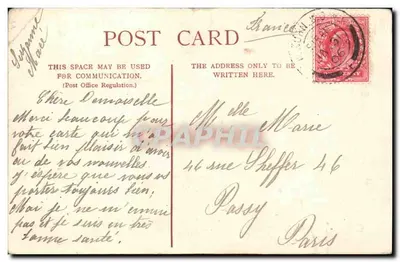 Suzanne
Marie
France
POST CARD
THIS SPACE MAY BE USED
FOR COMMUNICATION.
(Post Office Regulation.)
THE ADDRESS ONLY TO BE
WRITTEN HERE.
Chère Demoiselle
Merci beaucoup pour
votre carte qui m'a
fait bien plaisir d'avoir
eu de vos nouvelles.
J'espère que vous vous
portez toujours bien,
Moi je ne m'ennuie
pas et je suis en très
bonne santé.
Melle Marie
46 rue Sheffer 46
Passy
Paris